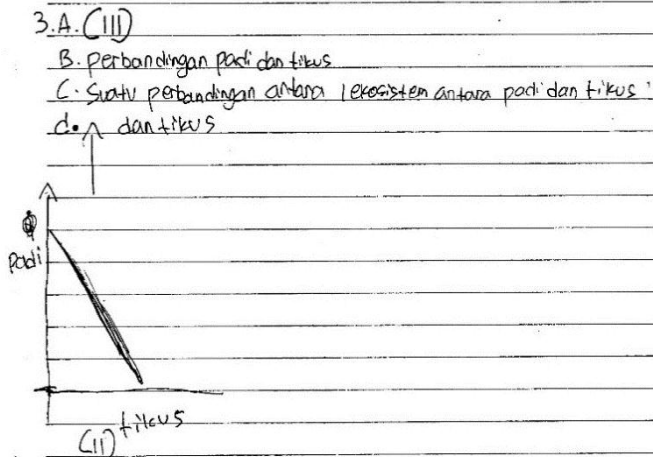 3. A. (III)
B. perbandingan padi dan tikus
C. Suatu perbandingan antara 1 ekosistem antara padi dan tikus
d. dan tikus
padi
tikus
(II)